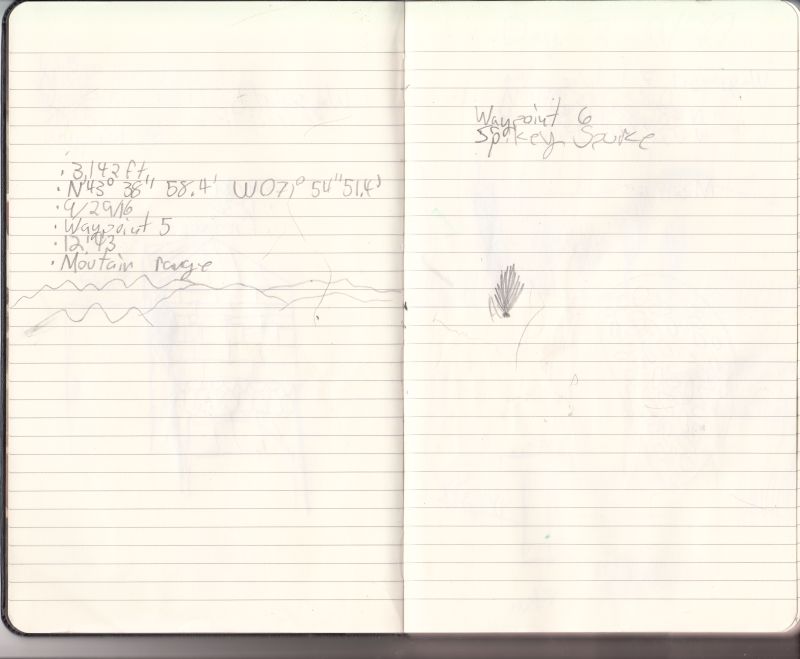 · 3,142 ft,
· N43° 38" 58.4' W071° 54" 51.4'
· 9/29/16
· Waypoint 5
· 12:43
· Moutain range
Waypoint 6
Spikey Spurce